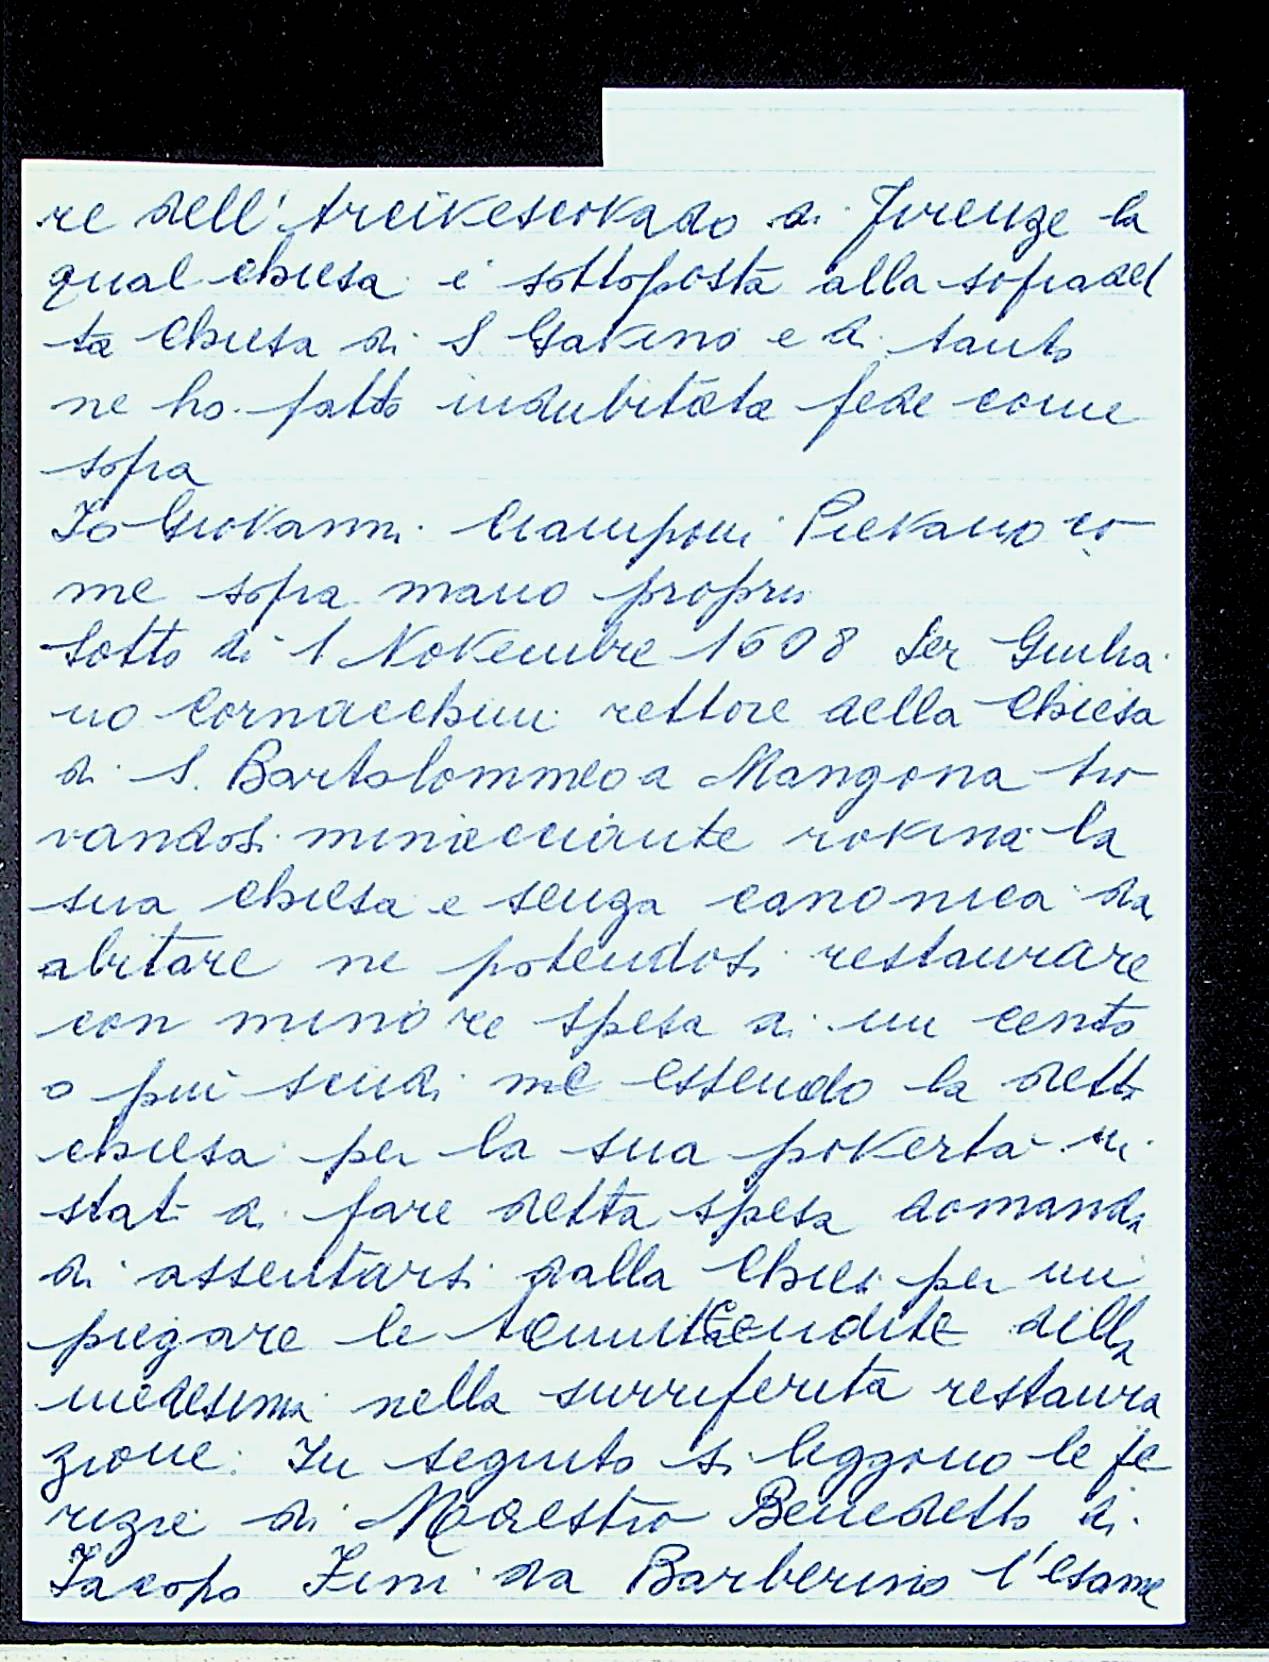 re dell'Arcivescovado di Firenze la
qual chiesa è sottoposta alla sopradet
ta Chiesa di S Gavino e di tanto
ne ho fatto indubitata fede come
sopra
Io Giovanni Ciamponi Pievano co
me sopra mano propria
Sotto di 1 Novembre 1608 Ser Giulia
no Cornacchini rettore della Chiesa
di S. Bartolommeo a Mangona tro
vandosi minacciante rovina la
sua chiesa e senza canonica da
abitare ne potendosi restaurare
con minore spesa di un cento
o più scudi ne essendo la detta
chiesa per la sua povertà in
stato di fare detta spesa domanda
di assentarsi dalla Chiesa per im
piegare le rendite della
medesima nella surriferita restaura
zione. In seguito si leggono le pe
rizie di Maestro Benedetto di
Iacopo da Barberino l'esame